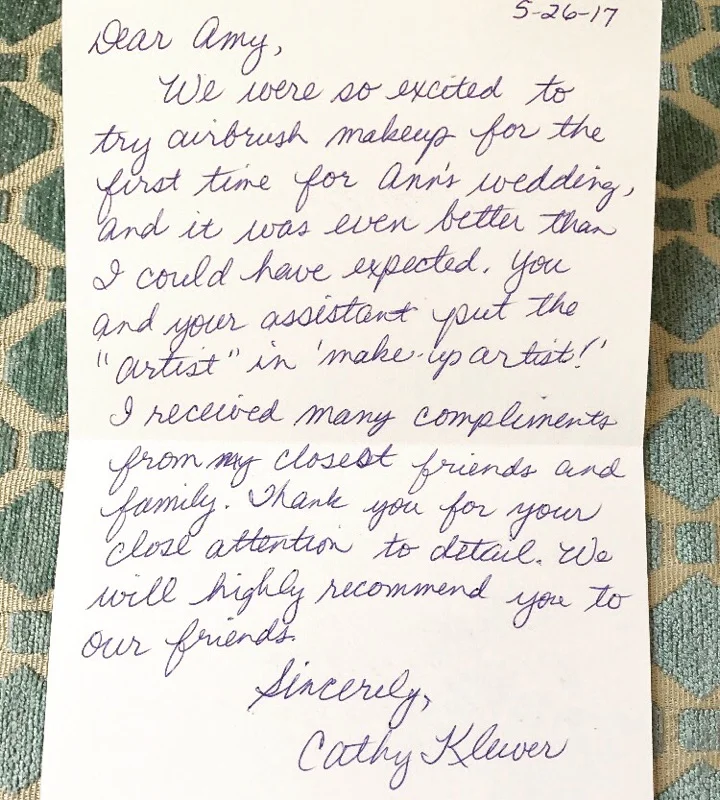 5-26-17
Dear Amy,
We were so excited to
try airbrush makeup for the
first time for Ann's wedding,
and it was even better than
I could have expected. You
and your assistant put the
"artist" in 'make-up artist!'
I received many compliments
from my closest friends and
family. Thank you for your
close attention to detail. We
will highly recommend you to
our friends.
Sincerely,
Cathy Kluver